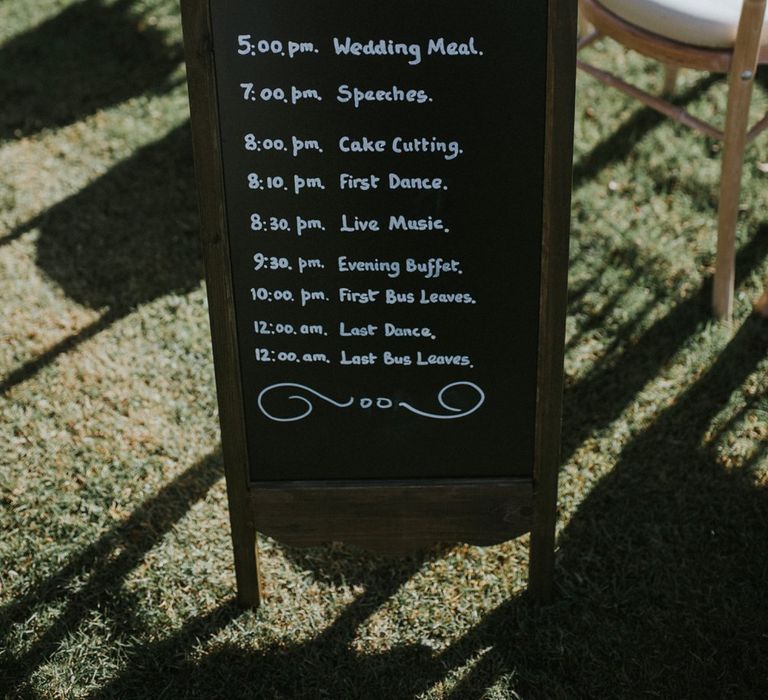 5:00.pm. Wedding Meal.
7:00.pm. Speeches.
8:00.pm. Cake Cutting.
8:10.pm. First Dance.
8:30.pm. Live Music.
9:30.pm. Evening Buffet.
10:00.pm. First Bus Leaves.
12:00.am. Last Dance.
12:00.am. Last Bus Leaves.